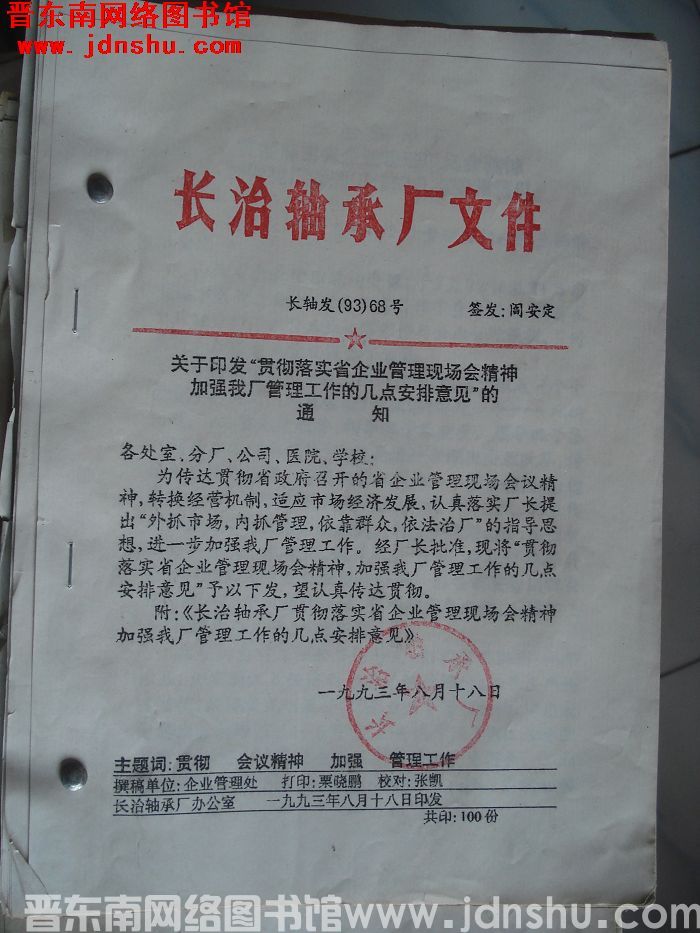 晋东南网络图书馆
www.jdnshu.com
长治轴承厂文件
长轴发(93)68号 签发:阎安定
关于印发“贯彻落实省企业管理现场会精神
加强我厂管理工作的几点安排意见”的
通 知
各处室、分厂、公司、医院、学校:
为传达贯彻省政府召开的省企业管理现场会议精
神,转换经营机制,适应市场经济发展、认真落实厂长提
出“外抓市场,内抓管理,依靠群众,依法治厂”的指导思
想,进一步加强我厂管理工作。经厂长批准,现将“贯彻
落实省企业管理现场会精神,加强我厂管理工作的几点
安排意见”予以下发,望认真传达贯彻。
附:《长治轴承厂贯彻落实省企业管理现场会精神
加强我厂管理工作的几点安排意见》
长治轴承厂
一九九三年八月十八日
主题词:贯彻 会议精神 加强 管理工作
撰稿单位:企业管理处 打印:栗晓鹏 校对:张凯
长治轴承厂办公室 一九九三年八月十八日印发
共印:100份
晋东南网络图书馆www.jdnshu.com